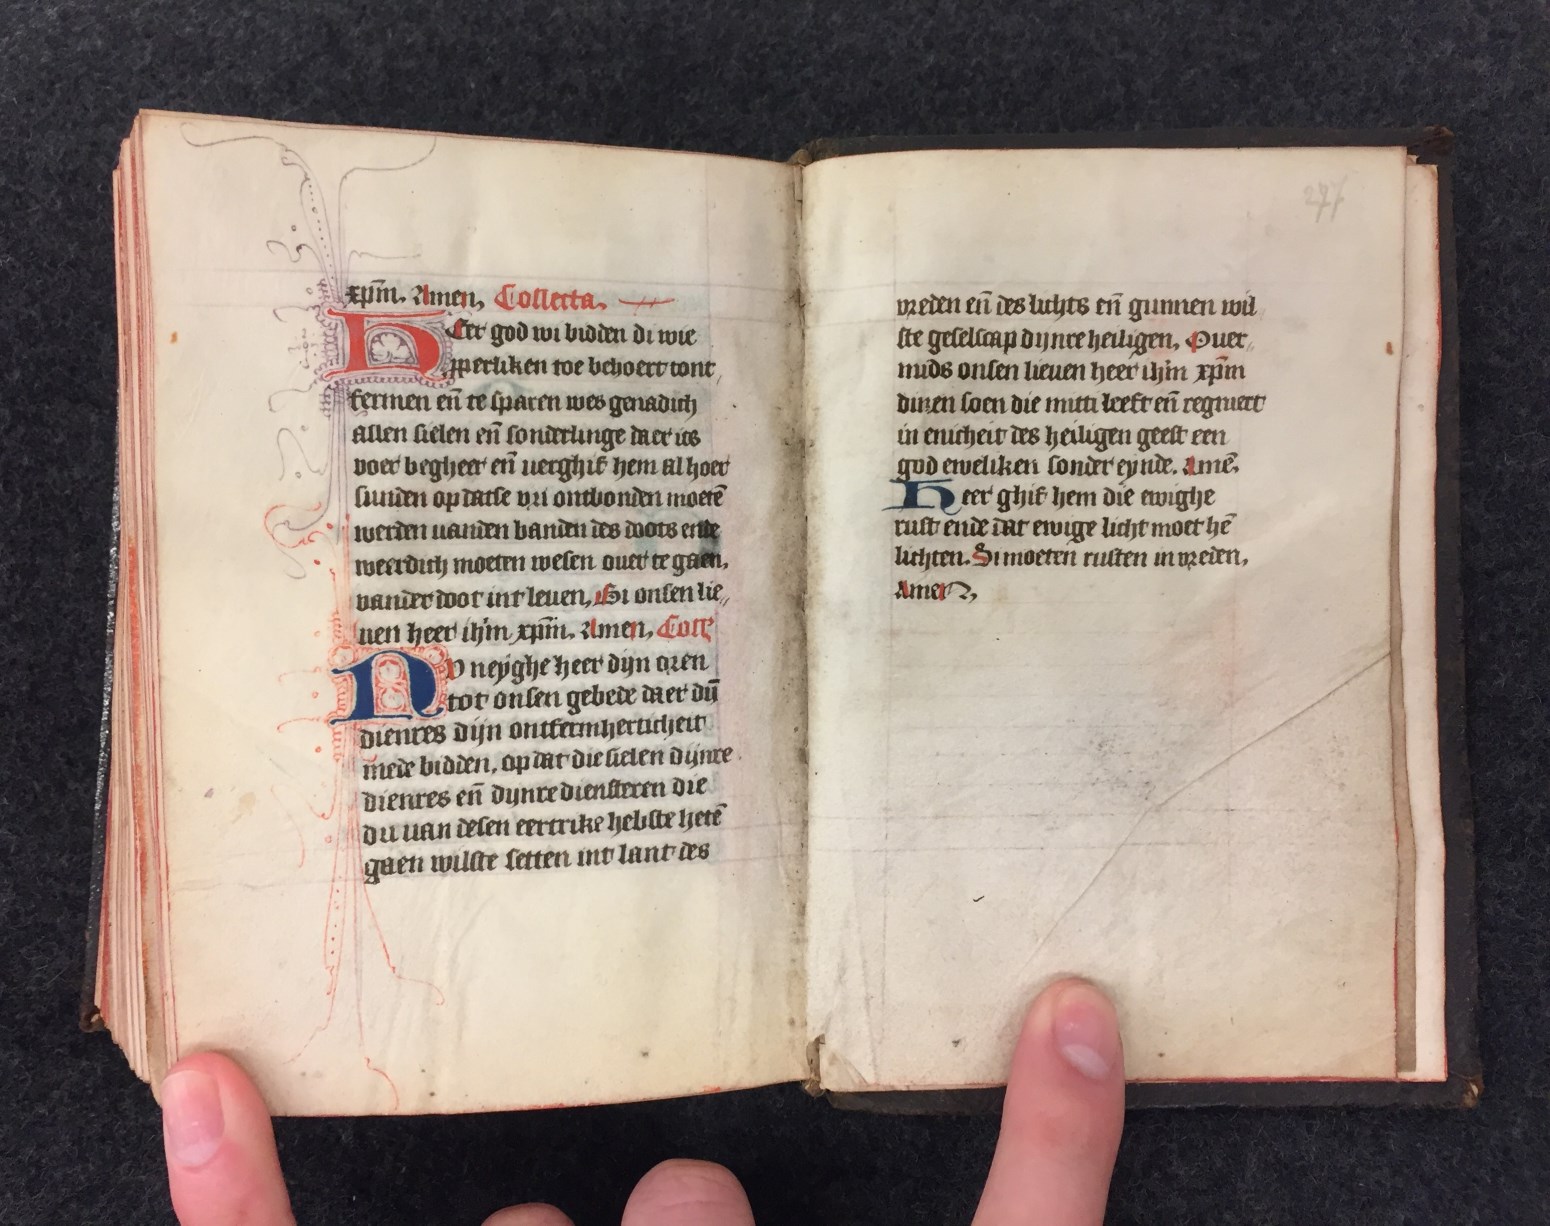 xpm̄. Amen, Collecta.
HEer god wi bidden di wie
properliken toe behoert tont
fermen eñ te sparen wes genadich
allen sielen eñ sonderlinge daer ics
voer begheer eñ verghif hem al hoer
sunden op datse vri ontbonden moetē
werden vanden banden des doots ende
weerdich moeten wesen over te gaen,
vander doot int leven, Bi onsen lie
ven heer ihm̄ xpm̄. Amen, Coll
NV neyghe heer dijn oren
tot onsen gebede daer dū
dienres dijn ontfermherticheit
mede bidden, op dat die sielen dijnre
dienres eñ dijnre diensteren die
du van desen eertrike hebste hetē
gaen wilste setten int lant des
277
vreden eñ des lichts eñ gunnen wil
ste geselscap dijnre heiligen, Over
mids onsen lieven heer ihm̄ xpm̄
dinen soen die mitti leeft eñ regniert
in enicheit des heiligen geest een
god eweliken sonder eynde. Amē.
Heer ghif hem die ewighe
rust ende dat ewige licht moet hē
lichten. Si moeten rusten in vreden,
Amen,